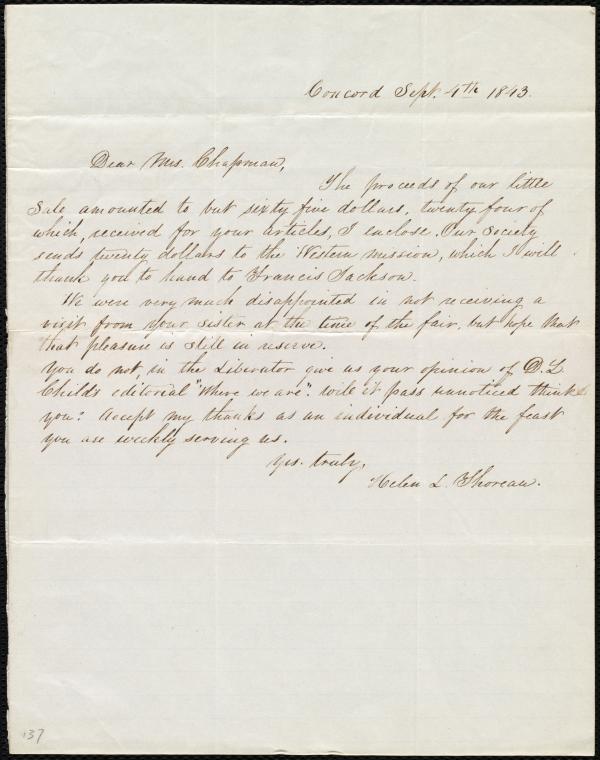 Concord Sept. 4th 1843.
Dear Mrs. Chapman,
The proceeds of our little
Sale amounted to but sixty five dollars, twenty four of
which, received for your articles, I enclose. Our Society
sends twenty dollars to the Western mission, which I will
thank you to hand to Francis Jackson.
We were very much disappointed in not receiving a
visit from your sister at the time of the fair, but hope that
that pleasure is still in reserve.
You do not in the Liberator give us your opinion of D. L
Child's editorial "Where we are". will it pass unnoticed think
you? Accept my thanks as an individual for the feast
you are weekly serving us.
Yrs. truly,
Helen L. Thoreau.
137